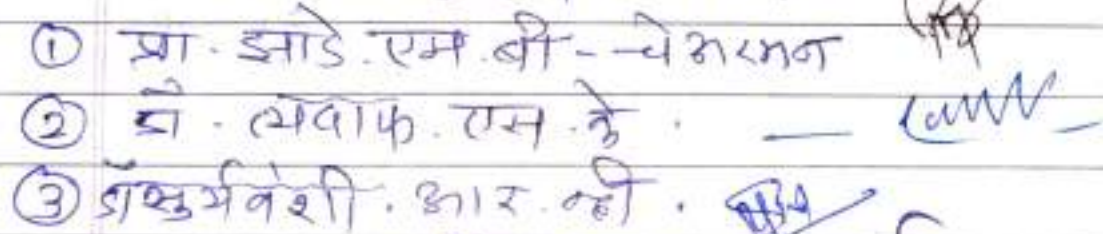 ① प्रा. झाडे. एम. बी - चेअरमन
② डॉ. एस. के.
③ डॉ सुर्यवंशी. आर. व्ही.